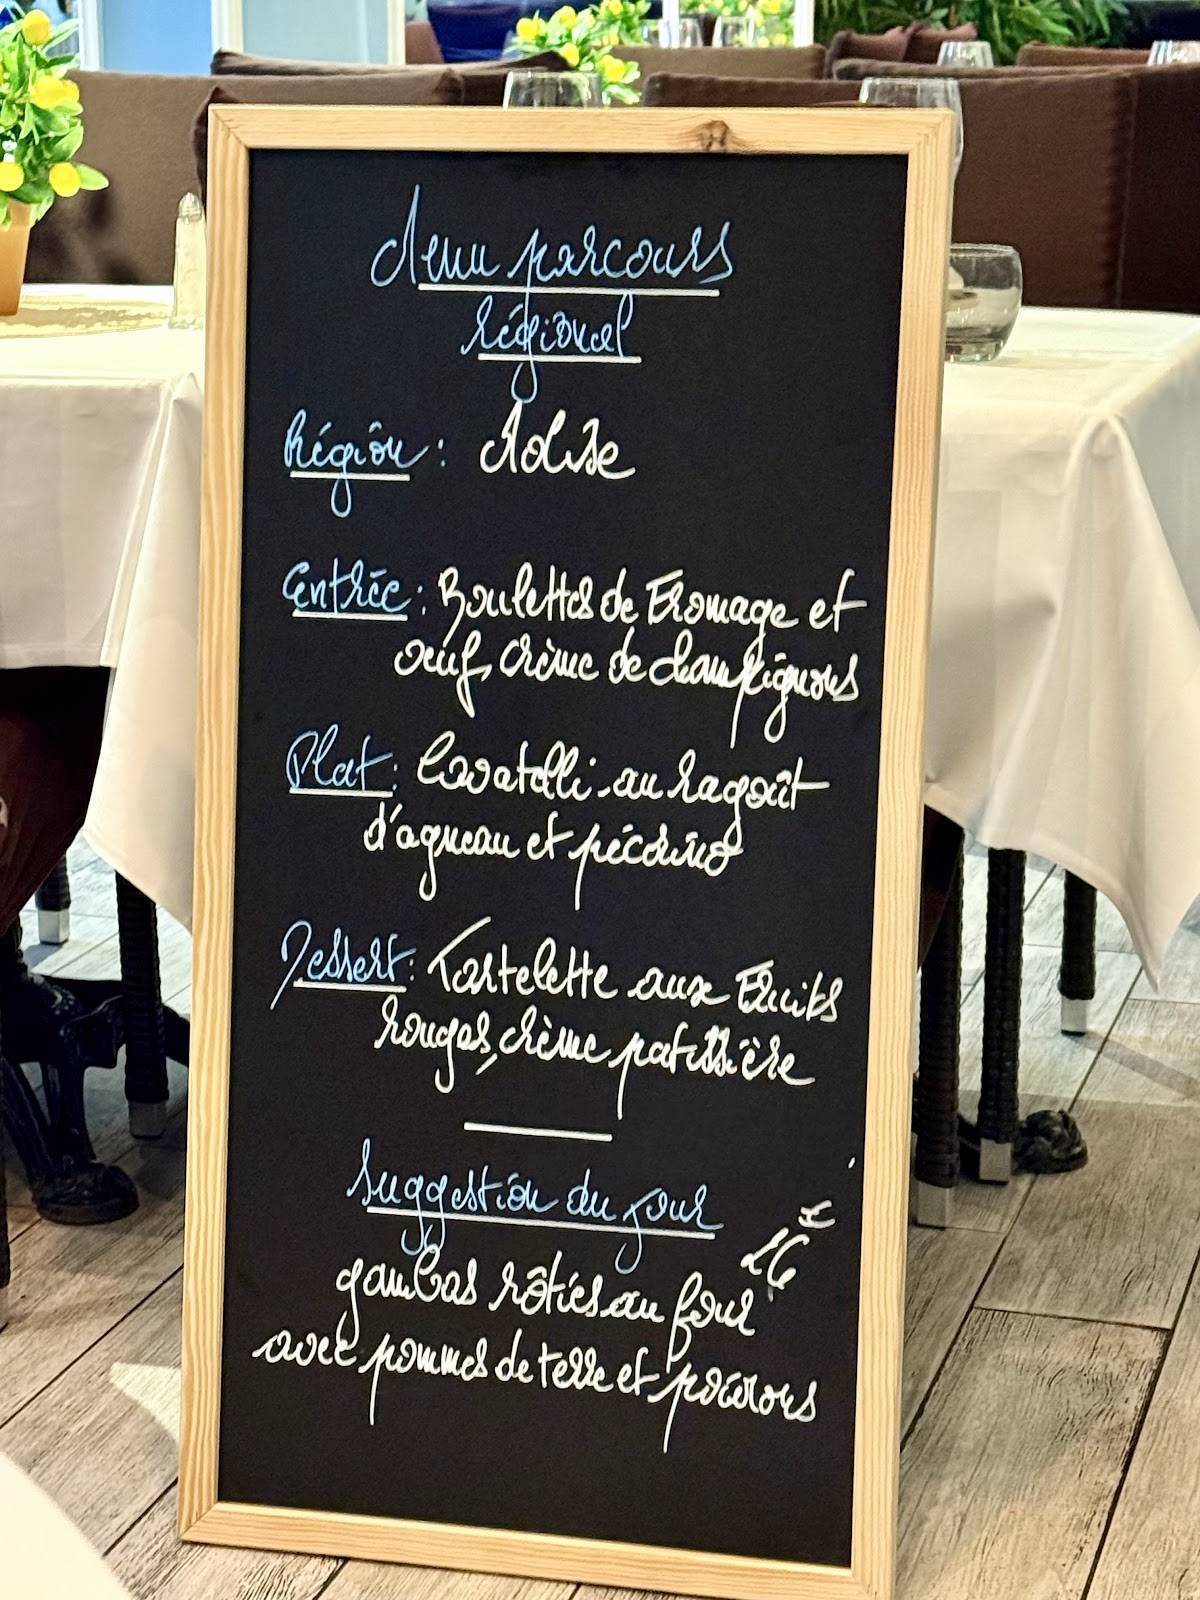 Menu parcours
régional
Région : Molise
Entrée : Boulettes de Fromage et
oeuf, crème de champignons
Plat : Cavatelli au ragoût
d'agneau et pécorino
Dessert : Tartelette aux Fruits
rouges, crème patissière
Suggestion du jour
26 €
gambas rôties au four
avec pommes de terre et poivrons